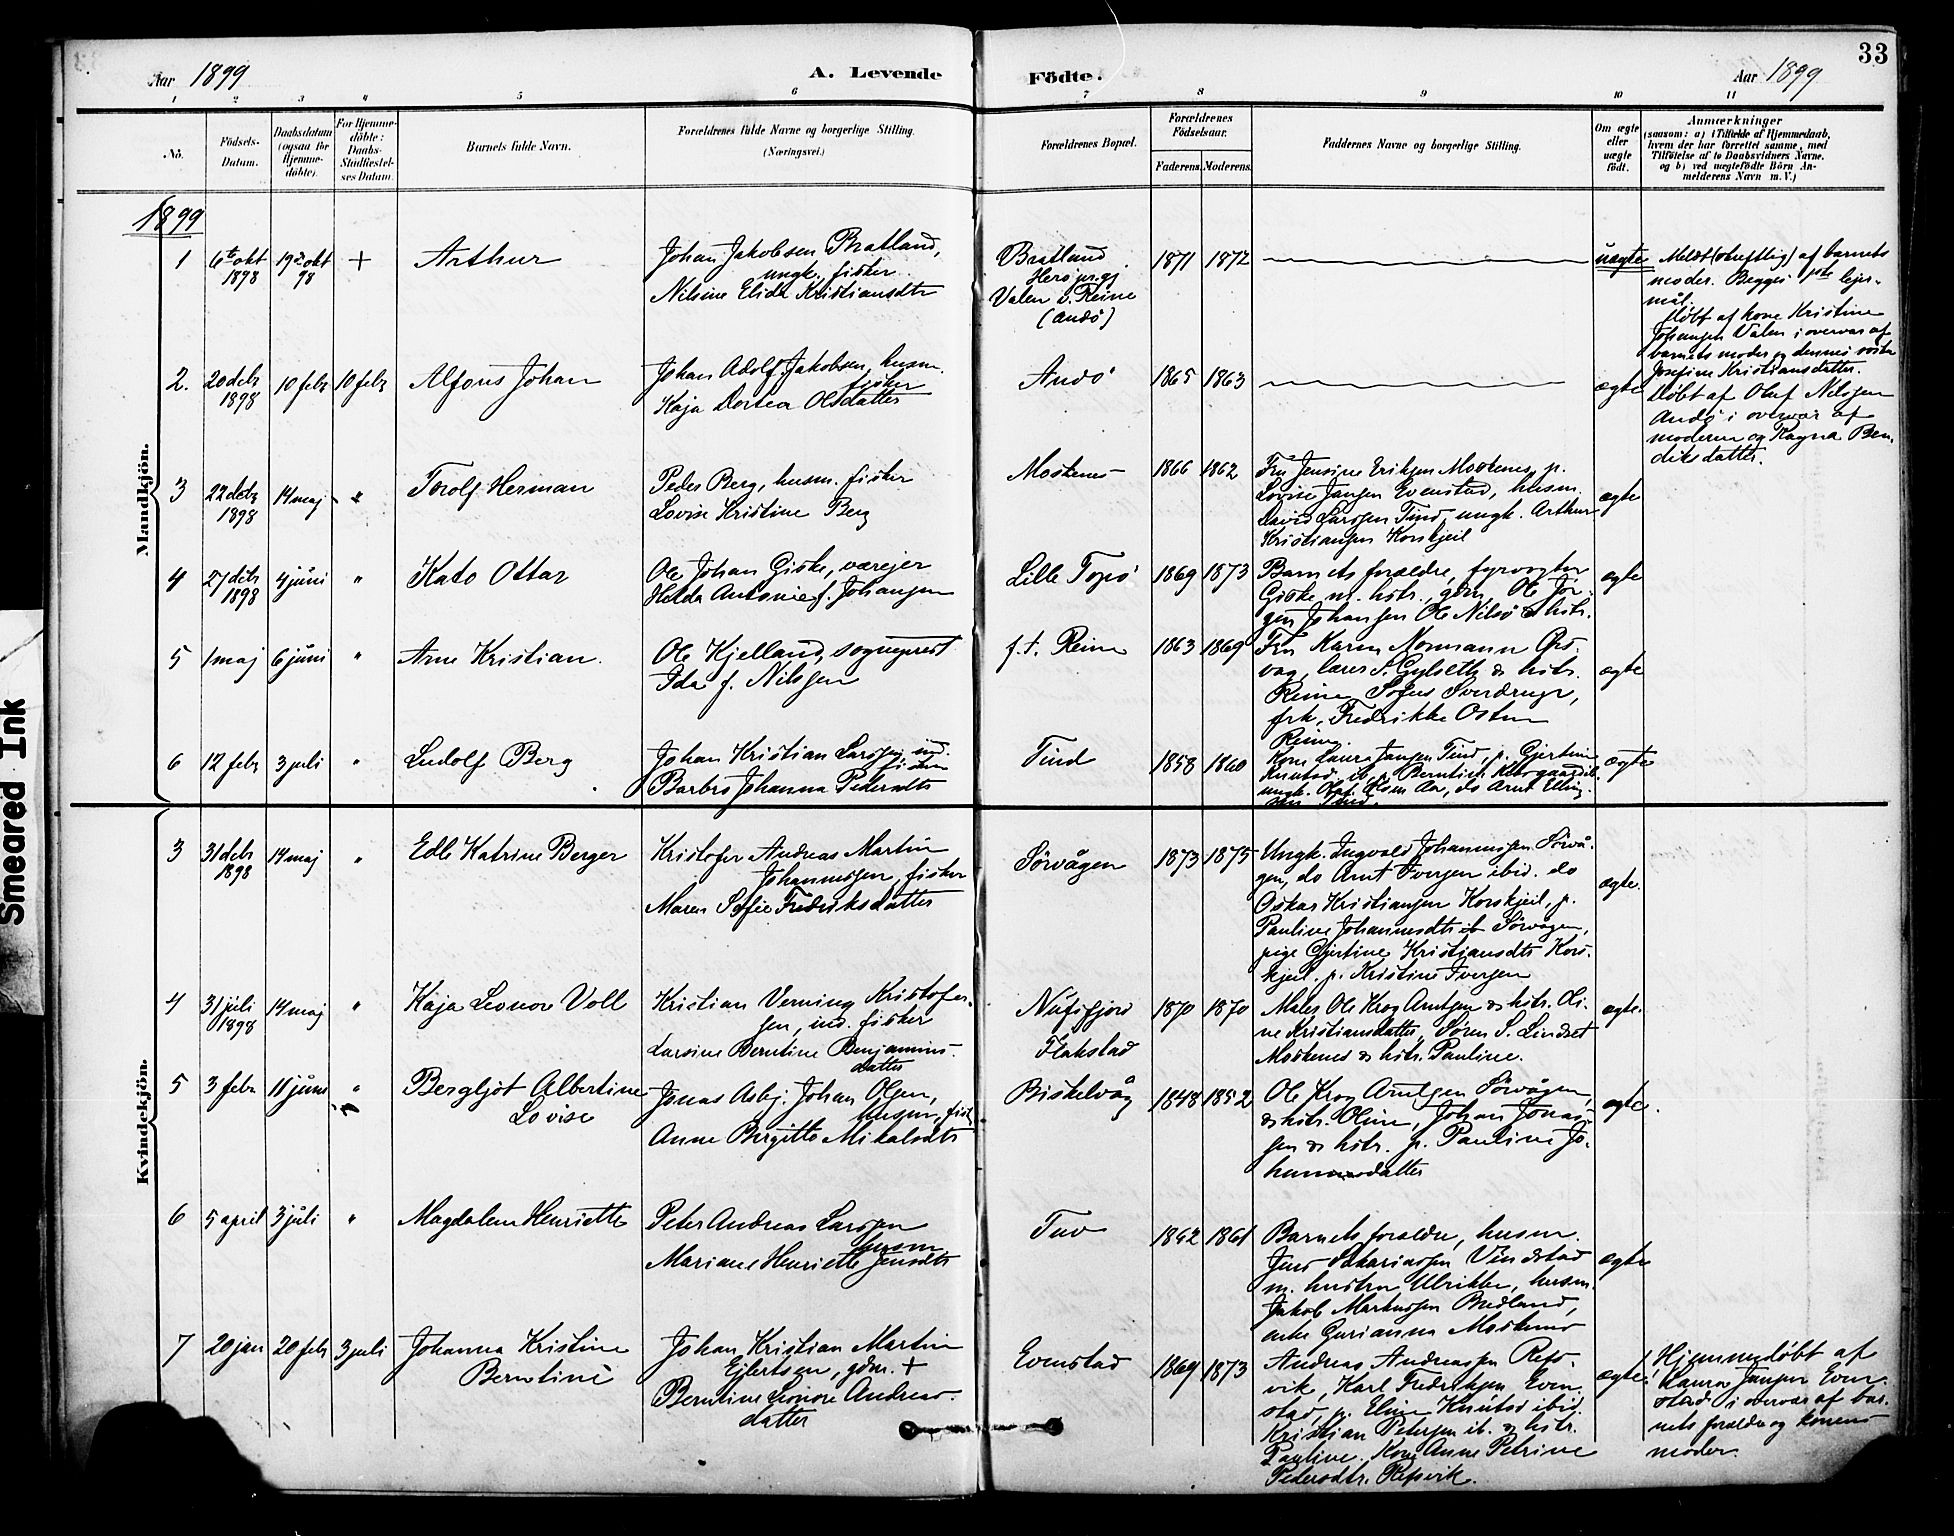 33
Aar 1899
A. Levende
Födte.
Aar 1899
1 2 3 4 5 6 7 8 9 10 11
No.
Födsels-
Datum.
Daabsdatum
(ogsaa for
Hjemme-
döbte).
For Hjemme-
döbte:
Daabs-
Stadfæstel-
ses Datum.
Barnets fulde Navn.
Forældrenes fulde Navne og borgerlige Stilling.
(Næringsvei.)
Forældrenes Bopæl.
Forældrenes
Födselsaar.
Faderens. Moderens.
Faddernes Navne og borgerlige Stilling.
Om ægte
eller
uægte
födt.
Anmærkninger
(saasom: a) i Tilfælde af Hjemmedaab,
hvem der har forrettet samme, med
Tilföielse af to Daabsvidners Navne,
og b) ved uægtefödte Börn An-
melderens Navn m. V.)
1899
Mandkjön.
1
6te okt
1898
19de okt
98
+
Arthur
Johan Jakobsen Bratland,
ungk. fisker
Nilsine Elida Kristiansdtr
Bratland
Herö prgj
Valen v. Reine
(Andö)
1871 1872
uægte
Meldt (skriftlig) af barnets
moder. Begges 1ste lejer-
mål.
Døbt af kone Kristine
Johansen Valen i overvær af
barnets moder og dennes søster
Josefine Kristiansdatter.
2.
20 debr
1898
10 febr
10 febr
Alfons Johan
Johan Adolf Jakobsen, husm.
fisker
Kaja Dortea Olsdatter
Andö
1865 1863
ægte
Døbt af Oluf Nilssen
Andö i overvær af
moderen og Ragna Ben-
diksdatter.
3
22 debr
1898
14 maj
Torolf Herman
Peder Berg, husm. fisker
Lovise Kristine Berg
Moskenes
1866 1862
Fru Jensine Eriksen Moskenes, p.
Lovise Jansen Evenstad, husm.
David Larssen Tind, ungk. Arthur
Kristiansen Korskjeil
ægte
4
27 debr
1898
4 juni
"
Kato Ottar
Ole Johan Giske, værejer
Helda Antonie f. Johansen
Lille Topö
1869 1873
Barnets forældre, fyrvogter
Giske m. hstr., gdm. Ole Jör-
gen Johansen Ole Nilsö & hstr.
ægte
5
1 maj
6 juni
"
Arne Kristian.
Ole Kjelland, sogneprest
Ida f. Nilssen
f. t. Reine
1863 1869
Fru Karen Normann Örs-
vag, lærer S. Gylseth & hstr.
Reine, Sofus Sverdrup,
frk. Fredrikke Osten
Reine.
ægte
6
12 febr
3 juli
"
Ludolf Berg
Johan Kristian Larssen, ind.
fisker
Barbro Johanna Pedersdtr
Tind
1858 1860
Kone Laura Jansen Tind, p. Gjertine
Knutsd. ib., p. Berntine
ungk. Olaf Olsen Aa, do Arnt Elling-
sen Tind.
ægte
Kvindekjön.
3
31 debr
1898
14 maj
"
Edle Katrine Berger
Kristofer Andreas Martin
Johannessen, fisker
Maren Sofie Fredriksdatter
Sörvågen
1873 1875
Ungk. Ingvald Johannessen Sörvå-
gen, do Arnt Iversen ibid. do
Oskar Kristiansen Korskjeil, p.
Pauline Johannesdtr Sörvågen,
pige Gjertine Kristiansdtr Kors-
kjeil, p. Kristine Iversen
ægte.
4
31 juli
1898
14 maj
"
Kaja Leonore Voll
Kristian Verning Kristofer-
sen, ind. fisker
Larsine Berntine Benjamins-
datter
Nufsfjord
Flakstad
1870 1870
Maler Ole Krog Arntsen & hstr. Oli-
ne Kristiansdatter, Sören S. Lindset
Moskenes & hstr. Pauline.
ægte.
5
3 febr
11 juni
"
Bergljot Albertine
Lovise
Jonas Asbj. Johan Olsen,
husm, fisk
Anne Birgitte Mikalsdtr
Biskelvåg
1848 1852
Ole Krog Arntsen Sörvågen,
& hstr. Oline, Johan Jonas-
sen & hstr. p. Pauline Jo-
hannesdatter
ægte.
6
5 april
3 juli
"
Magdalene Henriette
Peter Andreas Larssen
husm
Mariane Henriette Jensdtr
Tuv
1842 1861
Barnets forældre, husm.
Jens Sakariassen Vindstad
m. hustru Ulrikke, husm.
Jakob Markussen Bredland,
enke Gurianna Moskenes
ægte
7
20 jan
20 febr
3 juli
Johanna Kristine
Berntine
Johan Kristian Martin
Ejlertsen, gdm. +
Berntine Leonore Andreas-
datter
Evenstad
1869 1873
Andreas Andreassen Refs-
vik, Karl Fredriksen Even-
stad, p. Eline Knutsd ibid.
Kristian Petersen ib. & hstr.
Pauline, Kone Anne Petrine
Pedersdtr. Refsvik.
ægte.
Hjemmedøbt af
Laura Jansen Even-
stad i overvær af bar-
nets forældre og konens
moder.
Smeared Ink